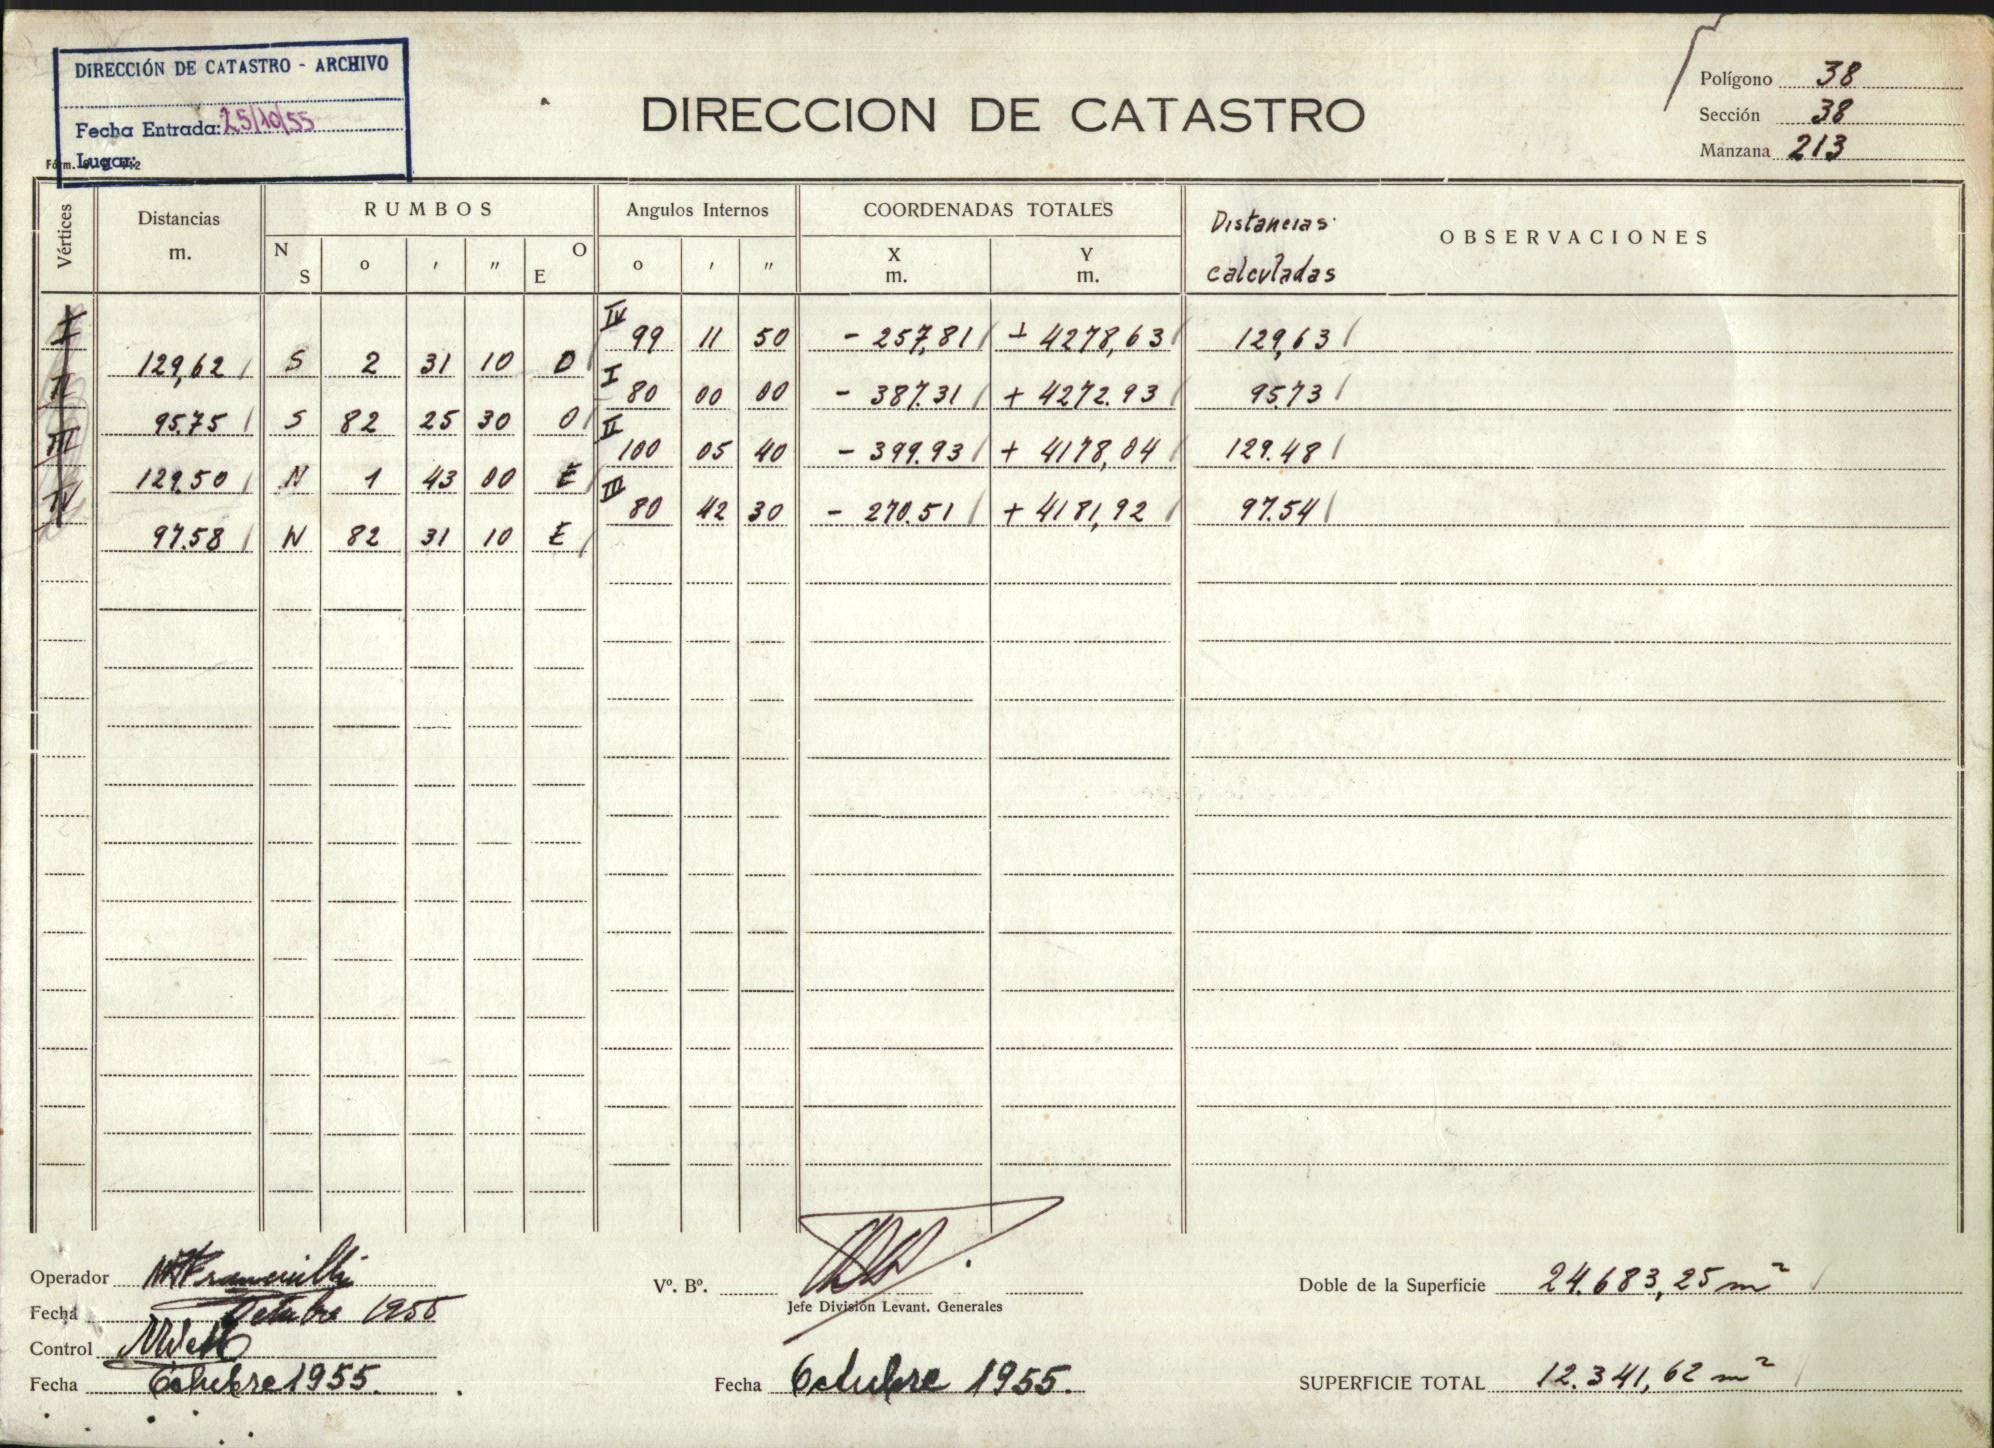 DIRECCIÓN DE CATASTRO - ARCHIVO
Fecha Entrada: 25/10/55
Lugar:
DIRECCION DE CATASTRO
Polígono 38
Sección 38
Manzana 213
Vértices Distancias m. RUMBOS Angulos Internos COORDENADAS TOTALES Distancias calculadas OBSERVACIONES
N S o ' " O E o ' " X m. Y m.
I IV 99 11 50 - 257,81 + 4278,63 129,63
129,62 S 2 31 10 O
II I 80 00 00 - 387.31 + 4272.93 95.73
95.75 S 82 25 30 O
III II 100 05 40 - 399.93 + 4178,04 129.48
129.50 N 1 43 00 E
IV III 80 42 30 - 270.51 + 4181,92 97.54
97.58 N 82 31 10 E
Operador
Fecha Octubre 1955
Control
Fecha Octubre 1955.
Vº. Bº.
Jefe División Levant. Generales
Fecha Octubre 1955.
Doble de la Superficie 24.683,25 m²
SUPERFICIE TOTAL 12.341,62 m²